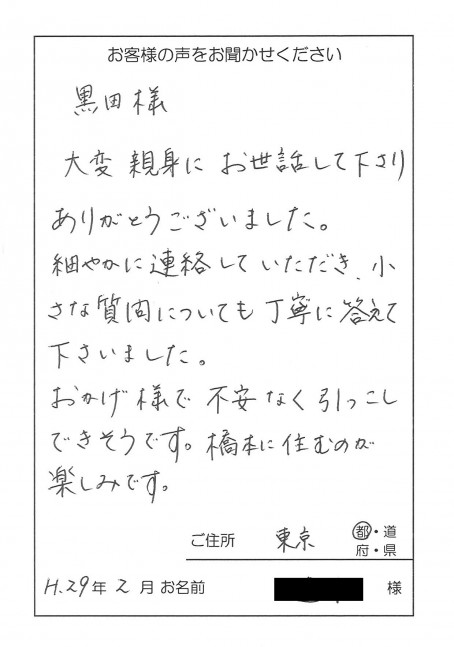 お客様の声をお聞かせください
黒田様
大変親身にお世話して下さり
ありがとうございました。
細やかに連絡していただき、小
さな質問についても丁寧に答えて
下さいました。
おかげ様で不安なく引っこし
できそうです。橋本に住むのが
楽しみです。
ご住所 東京 都・道
府・県
H.29年2月 お名前 様